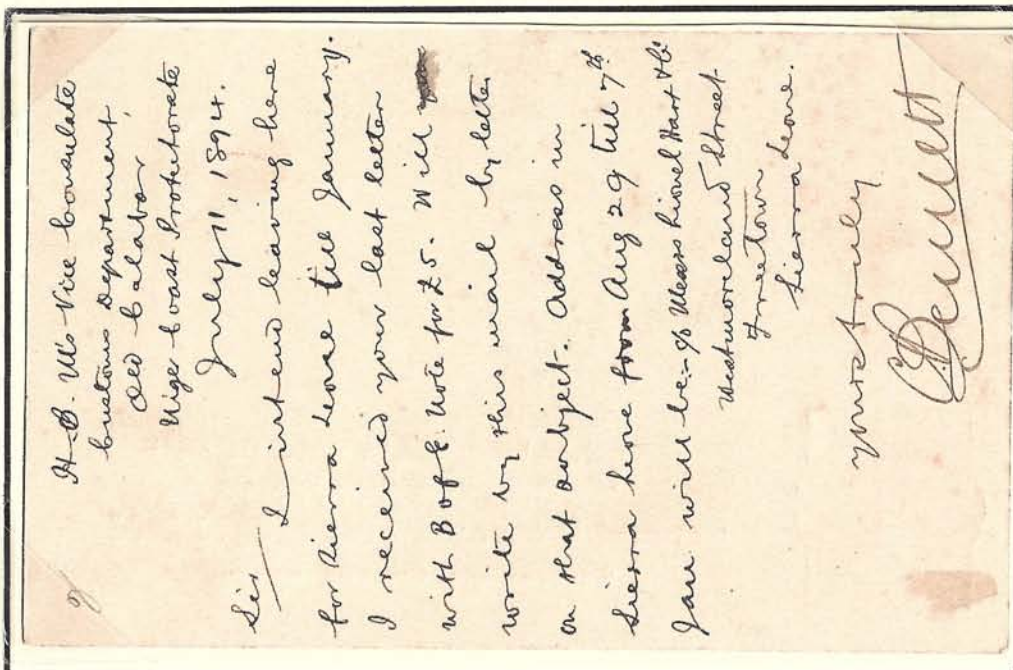 H.B.M's Vice Consulate
Customs Department,
Old Calabar
Niger Coast Protectorate
July 11, 1894.
Sir
I intend leaving here
for Sierra Leone till January.
I received your last letter
with B of E. Note for £5. Will
write by this mail by letter
on that subject. Address in
Sierra Leone from Aug 29 till 7th
Jan will be:- c/o Messrs Lionel Hart & Co
Westmoreland Street
Freetown
Sierra Leone.
yours truly
Bennett